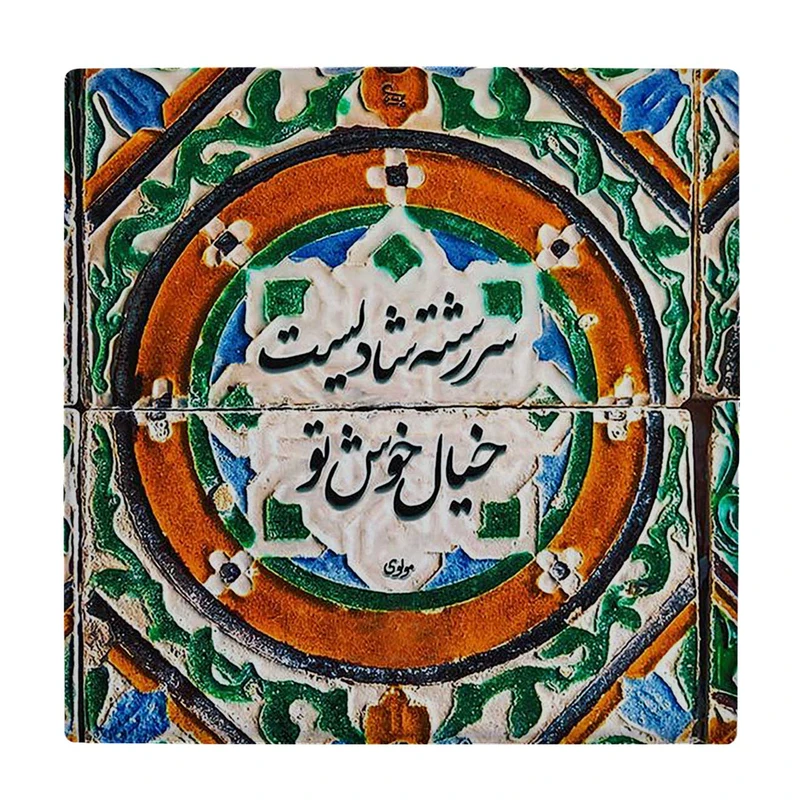 سررشته شادیست
خیال خوش تو
مولوی